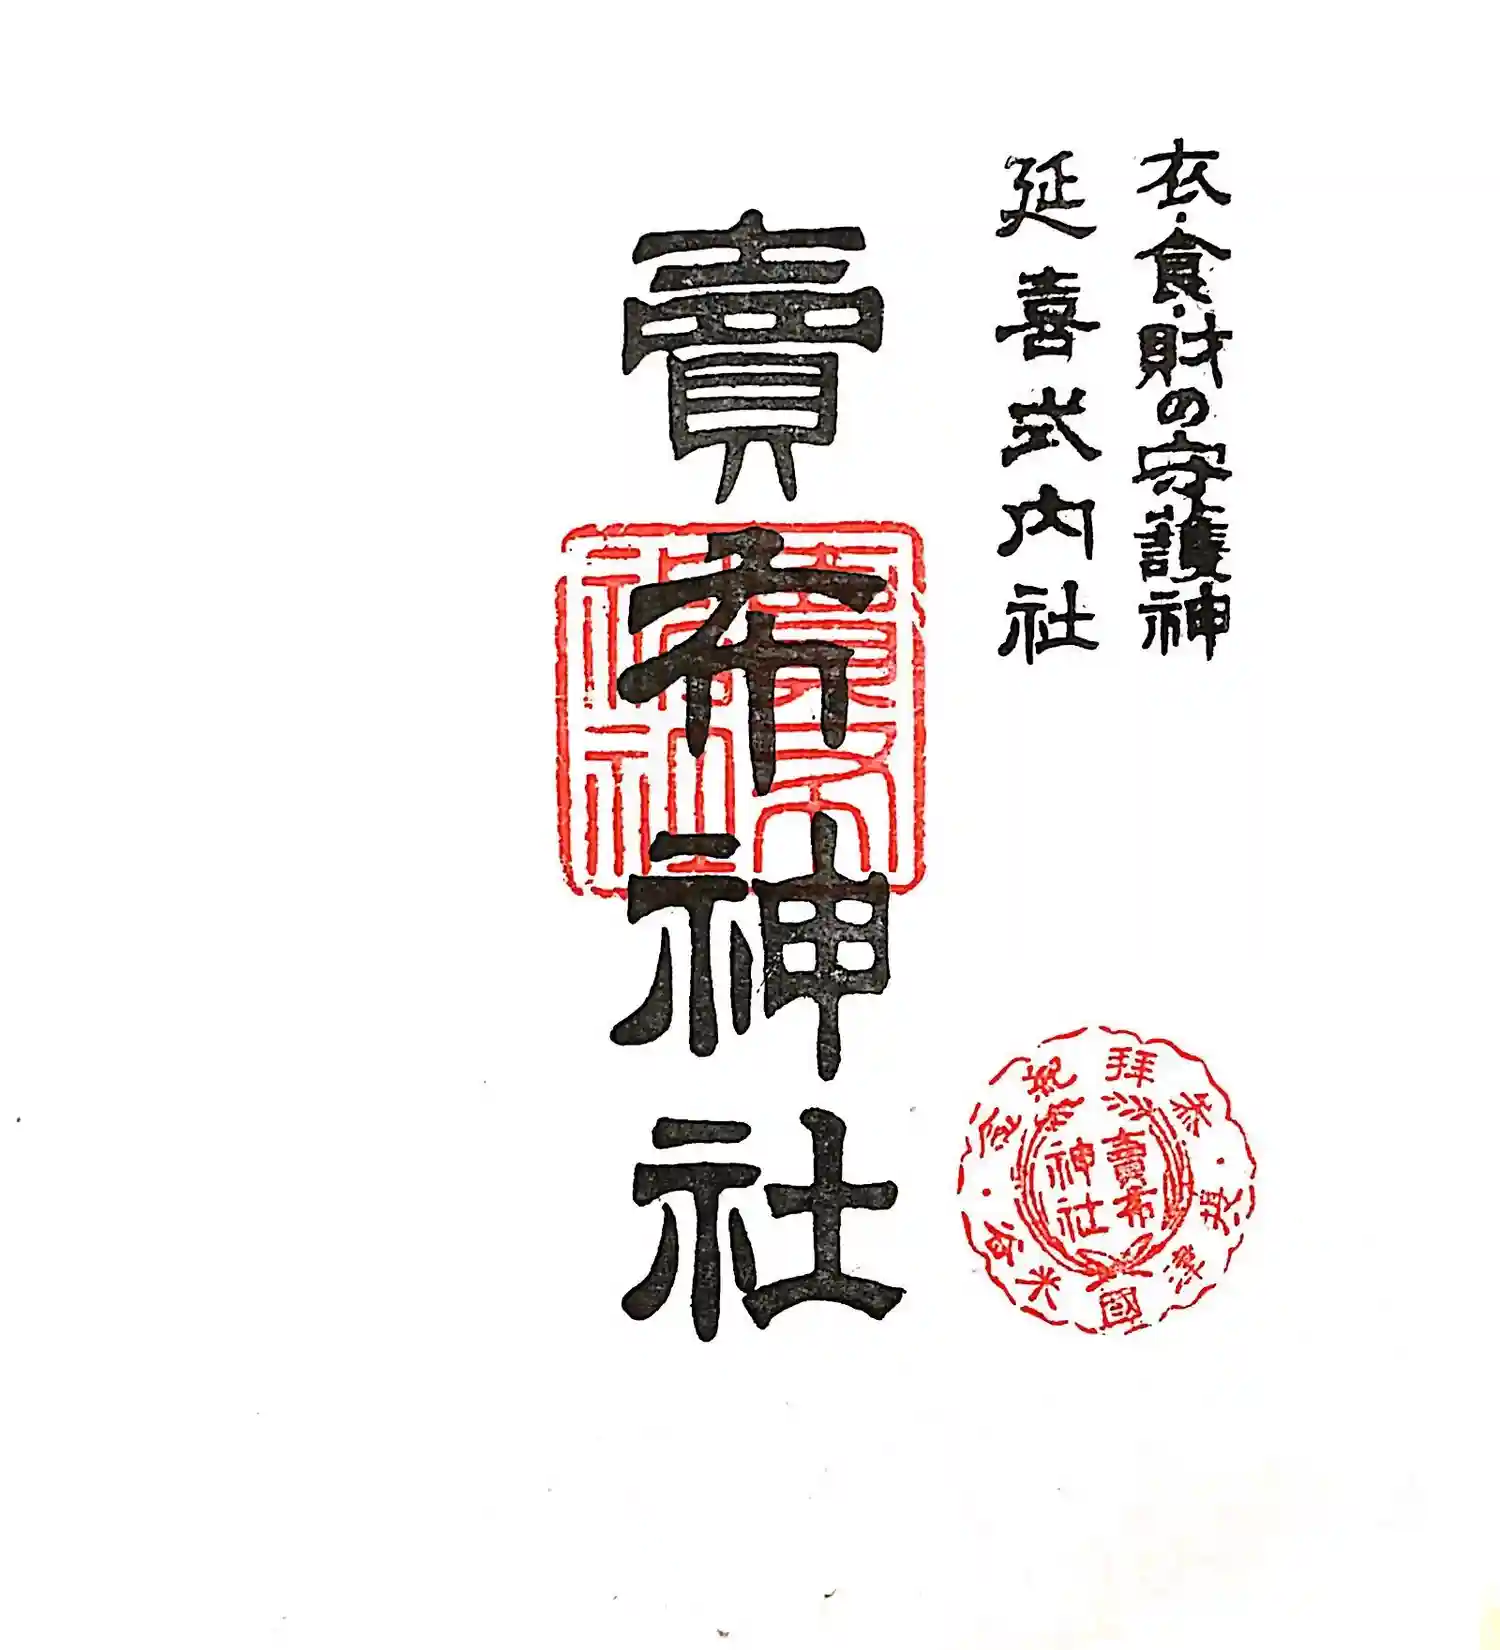 衣・食・財の守護神
延喜式内社
賣布神社
賣布
神社
参拝記念
摂津國米谷
賣布
神社